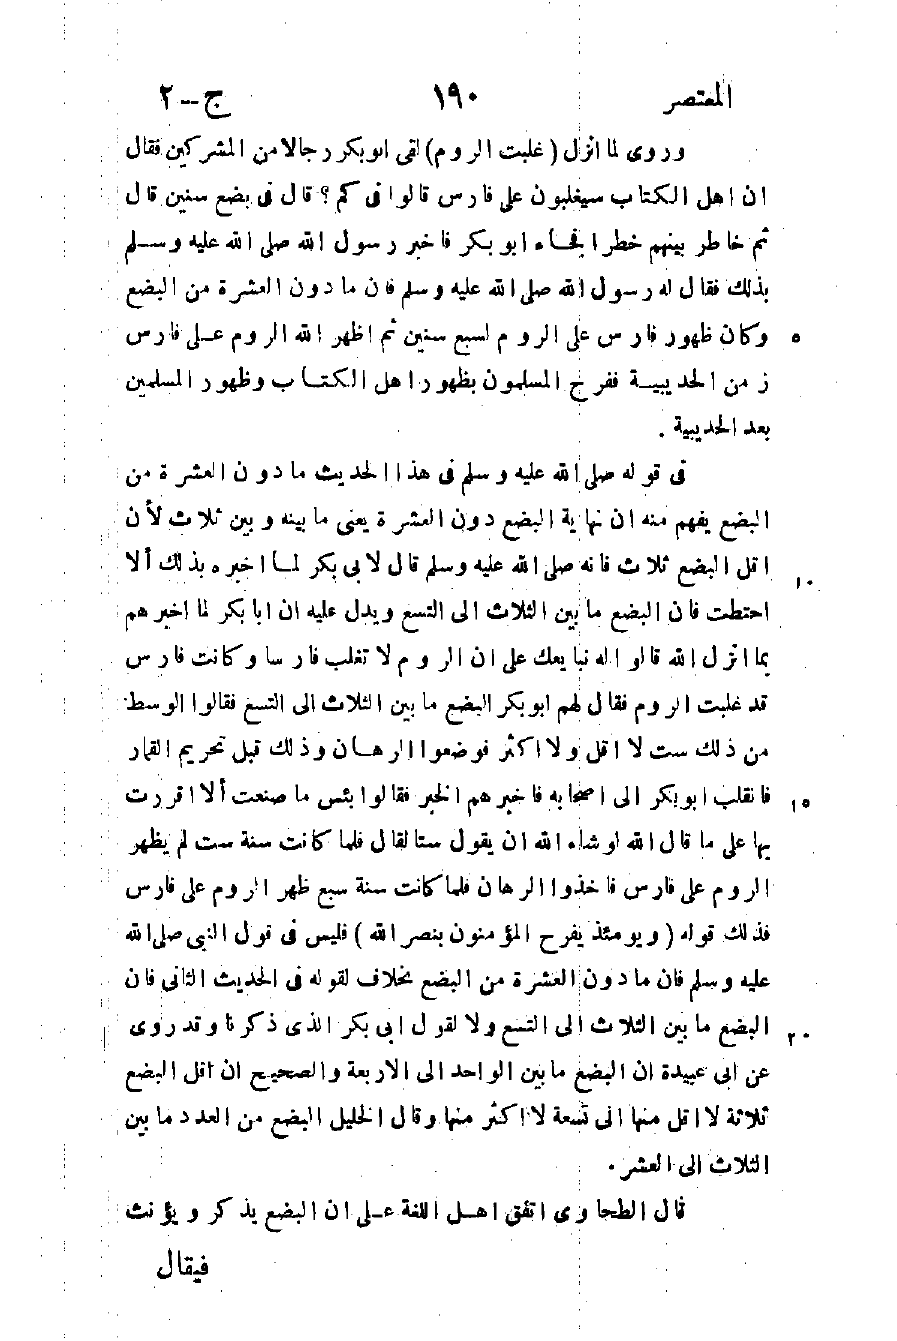 المعتصر ١٩٠ ج--٢
وروى لما انزل (غلبت الروم) لقى ابوبكر رجالا من المشركين فقال
ان اهل الكتاب سيغلبون على فارس قالوا فى كم؟ قال فى بضع سنين قال
ثم خاطر بينهم خطرا فجاء ابو بكر فاخبر رسول الله صلى الله عليه وسلم
بذلك فقال له رسول الله صلى الله عليه وسلم فان ما دون العشرة من البضع
وكان ظهور فارس على الروم لسبع سنين ثم اظهر الله الروم على فارس ٥
زمن الحديبية ففرح المسلمون بظهور اهل الكتاب وظهور المسلمين
بعد الحديبية .
فى قوله صلى الله عليه وسلم فى هذا الحديث ما دون العشرة من
البضع يفهم منه ان نهاية البضع دون العشرة يعنى ما بينه وبين ثلاث لأن
اقل البضع ثلاث فانه صلى الله عليه وسلم قال لابى بكر لما اخبره بذلك ألا ١٠
احتطت فان البضع ما بين الثلاث الى التسع ويدل عليه ان ابا بكر لما اخبرهم
بما انزل الله قالوا له نبايعك على ان الروم لا تغلب فارسا وكانت فارس
قد غلبت الروم فقال لهم ابوبكر البضع ما بين الثلاث الى التسع فقالوا الوسط
من ذلك ست لا اقل ولا اكثر فوضعوا الرهان وذلك قبل تحريم القمار
فانقلب ابوبكر الى اصحابه فاخبرهم الخبر فقالوا بئس ما صنعت ألا اقررت ١٥
بها على ما قال الله لوشاء الله ان يقول ستا لقال فلما كانت سنة ست لم يظهر
الروم على فارس فاخذوا الرهان فلما كانت سنة سبع ظهر الروم على فارس
فذلك قوله (ويومئذ يفرح المؤمنون بنصر الله) فليس فى قول النبى صلى الله
عليه وسلم فان ما دون العشرة من البضع بخلاف لقوله فى الحديث الثانى فان
البضع ما بين الثلاث الى التسع ولا لقول ابى بكر الذى ذكرنا وقد روى ٢٠
عن ابى عبيدة ان البضع ما بين الواحد الى الاربعة والصحيح ان اقل البضع
ثلاثة لا اقل منها الى تسعة لا اكثر منها وقال الخليل البضع من العدد ما بين
الثلاث الى العشر .
قال الطحاوى اتفق اهل اللغة على ان البضع يذكر ويؤنث
فيقال